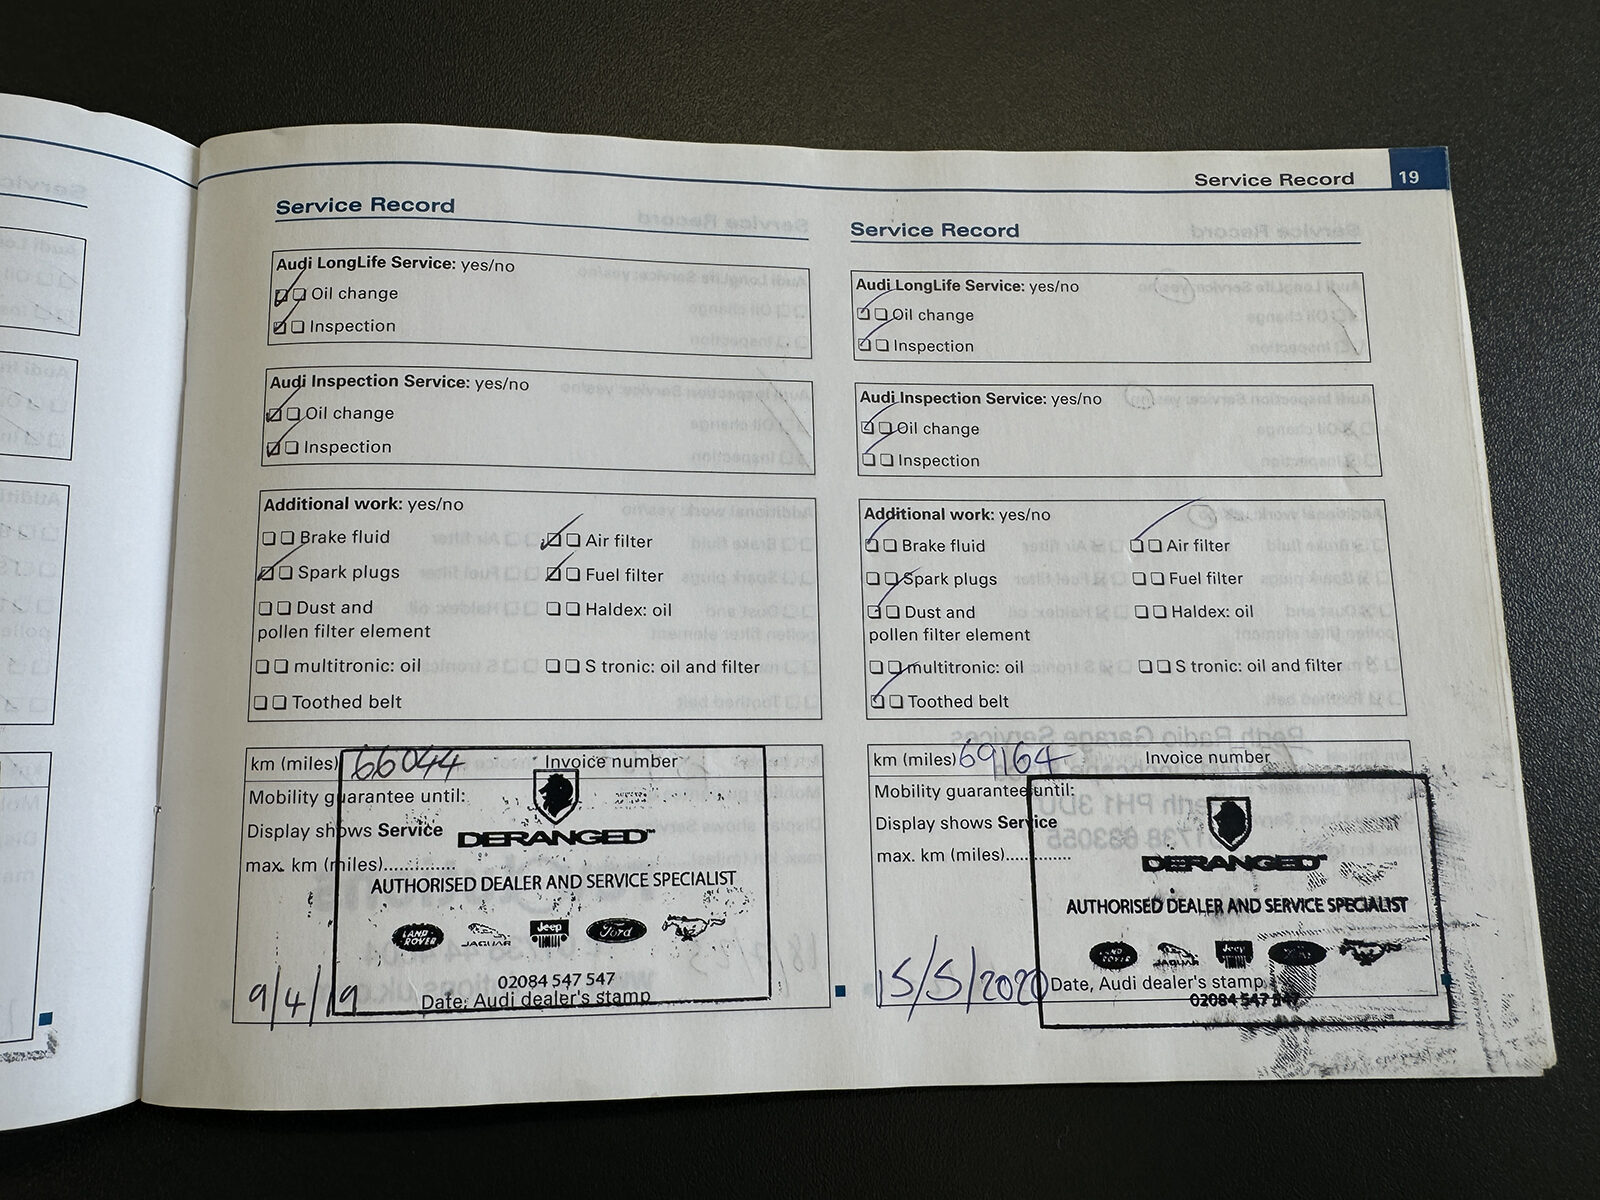 Service Record 19
Service Record
Audi LongLife Service: yes/no
Oil change
Inspection
Audi Inspection Service: yes/no
Oil change
Inspection
Additional work: yes/no
Brake fluid
Air filter
Spark plugs
Fuel filter
Dust and
pollen filter element
Haldex: oil
multitronic: oil
S tronic: oil and filter
Toothed belt
km (miles) 66044 Invoice number
Mobility guarantee until:
Display shows Service
max. km (miles)..............
DERANGED
AUTHORISED DEALER AND SERVICE SPECIALIST
LAND ROVER JAGUAR Jeep Ford
02084 547 547
9/4/19 Date, Audi dealer's stamp
Service Record
Audi LongLife Service: yes/no
Oil change
Inspection
Audi Inspection Service: yes/no
Oil change
Inspection
Additional work: yes/no
Brake fluid
Air filter
Spark plugs
Fuel filter
Dust and
pollen filter element
Haldex: oil
multitronic: oil
S tronic: oil and filter
Toothed belt
km (miles) 69164 Invoice number
Mobility guarantee until:
Display shows Service
max. km (miles)..............
DERANGED
AUTHORISED DEALER AND SERVICE SPECIALIST
ROVER JAGUAR Jeep
15/5/2020 Date, Audi dealer's stamp
02084 547 547